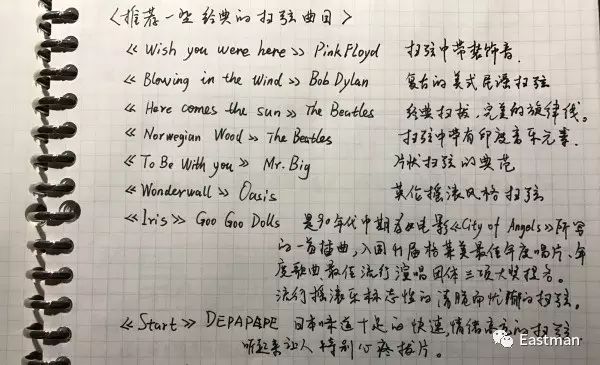 <推荐一些经典的扫弦曲目>
《Wish you were here》 Pink Floyd 扫弦中带装饰音.
《Blowing in the Wind》 Bob Dylan 复古的美式民谣扫弦
《Here comes the sun》 The Beatles 经典扫拨,完美的旋律线。
《Norwegian Wood》 The Beatles 扫弦中带有印度音乐元素.
《To Be With you》 Mr. Big 片状扫弦的典范
《Wonderwall》 Oasis 英伦摇滚风格扫弦
《Iris》 Goo Goo Dolls 是90年代中期为电影《City of Angels》所写
的一首插曲,入围41届格莱美最佳年度唱片、年
度歌曲最佳流行演唱团体三项大奖提名。
流行摇滚乐标志性的清脆而忧郁的扫弦。
《Start》 DEPAPAPE 日本味道十足的快速,情绪 的扫弦
听起来让人特别心疼拨片。
Eastman